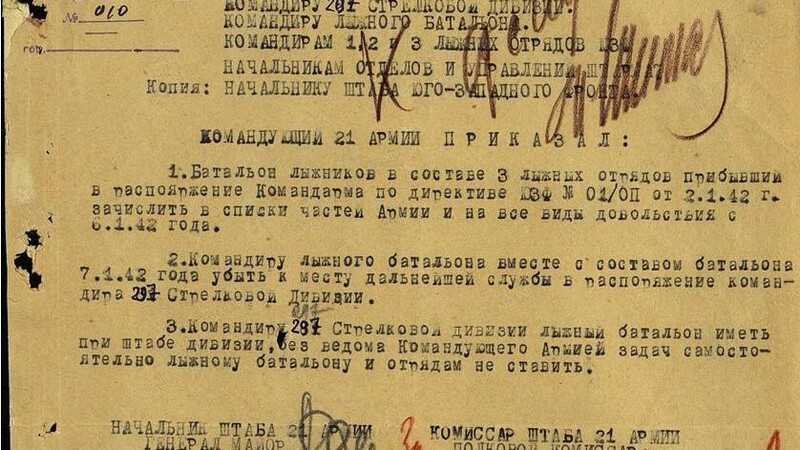 КОМАНДИРУ 297 СТРЕЛКОВОЙ ДИВИЗИИ.
№ 010
КОМАНДИРУ ЛЫЖНОГО БАТАЛЬОНА.
КОМАНДИРАМ 1,2 и 3 ЛЫЖНЫХ ОТРЯДОВ ЮЗФ
гор.
НАЧАЛЬНИКАМ ОТДЕЛОВ И УПРАВЛЕНИЙ
Копия: НАЧАЛЬНИКУ ШТАБА ЮГО-ЗАПАДНОГО ФРОНТА.
КОМАНДУЮЩИЙ 21 АРМИИ ПРИКАЗАЛ:
1.Батальон лыжников в составе 3 лыжных отрядов прибывший
в распояряжение Командарма по директиве ЮЗФ № 01/ОП от 2.1.42 г.
зачислить в списки частей Армии и на все виды довольствия с
6.1.42 года.
2.Командиру лыжного батальона вместе с составом батальона
7.1.42 года убыть к месту дальнейшей службы в распоряжение коман-
дира 297 Стрелковой Дивизии.
297
3.Командиру 297 Стрелковой дивизии лыжный батальон иметь
при штабе дивизии, без ведома Командующего Армией задач самосто-
ятельно лыжному батальону и отрядам не ставить.
НАЧАЛЬНИК ШТАБА 21 АРМИИ КОМИССАР ШТАБА 21 АРМИИ
ГЕНЕРАЛ МАЙОР ПОЛКОВОЙ КОМИССАР